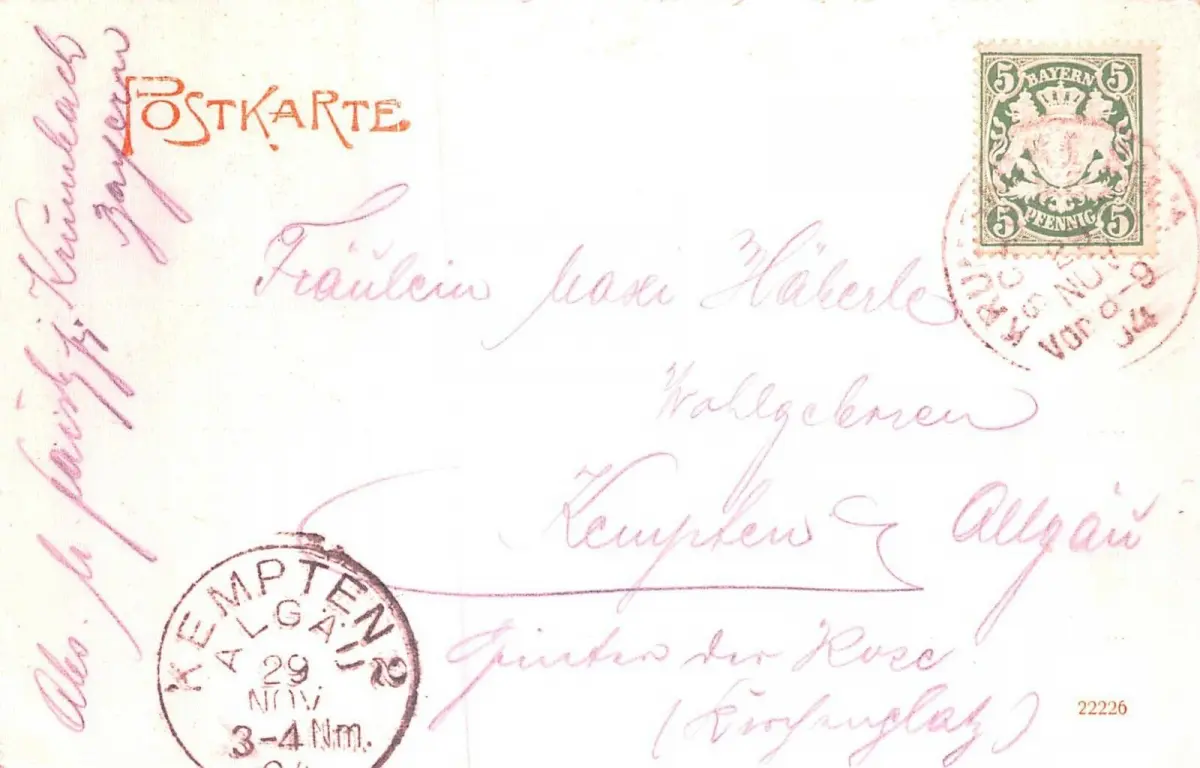 POSTKARTE
5 BAYERN 5
5 PFENNIG 5
NOV
Vor 8-9
04
Fräulein Maxi Häberle
Wohlgeboren
Kempten Allgäu
Hinter der Rose
(Kirchenplatz)
KEMPTEN 2
ALGÄU
29
NOV
3-4 Nm.
22226
Abs.
Krumbach
Bayern